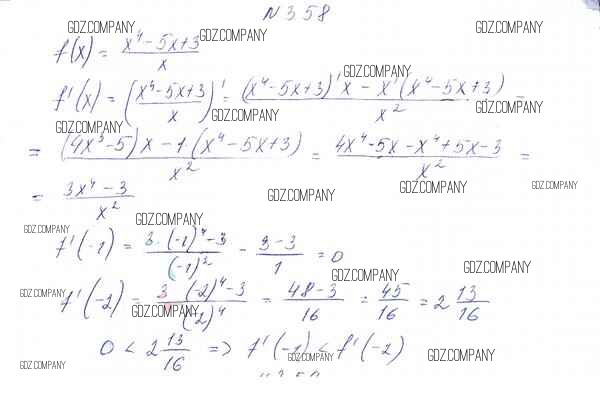 N 358
GDZ.COMPANY GDZ.COMPANY
f(x) = (x⁴ – 5x + 3)/x GDZ.COMPANY
GDZ.COMPANY
f'(x) = ((x⁴ – 5x + 3)/x)' = ((x⁴ – 5x + 3)' x – x' (x⁴ – 5x + 3))/x² =
GDZ.COMPANY GDZ.COMPANY GDZ.COMPANY
= ((4x³ – 5)x – 1·(x⁴ – 5x + 3))/x² = (4x⁴ – 5x – x⁴ + 5x – 3)/x² =
= (3x⁴ – 3)/x² GDZ.COMPANY GDZ.COMPANY GDZ.COMPANY
GDZ.COMPANY GDZ.COMPANY
f'(-1) = (3·(-1)⁴ – 3)/(-1)² = (3 – 3)/1 = 0
GDZ.COMPANY GDZ.COMPANY
f'(-2) = (3 (-2)⁴ – 3)/(-2)⁴ = (48 – 3)/16 = 45/16 = 2 13/16
GDZ.COMPANY GDZ.COMPANY
0 < 2 13/16 => f'(-1) < f'(-2)
GDZ.COMPANY GDZ.COMPANY GDZ.COMPANY